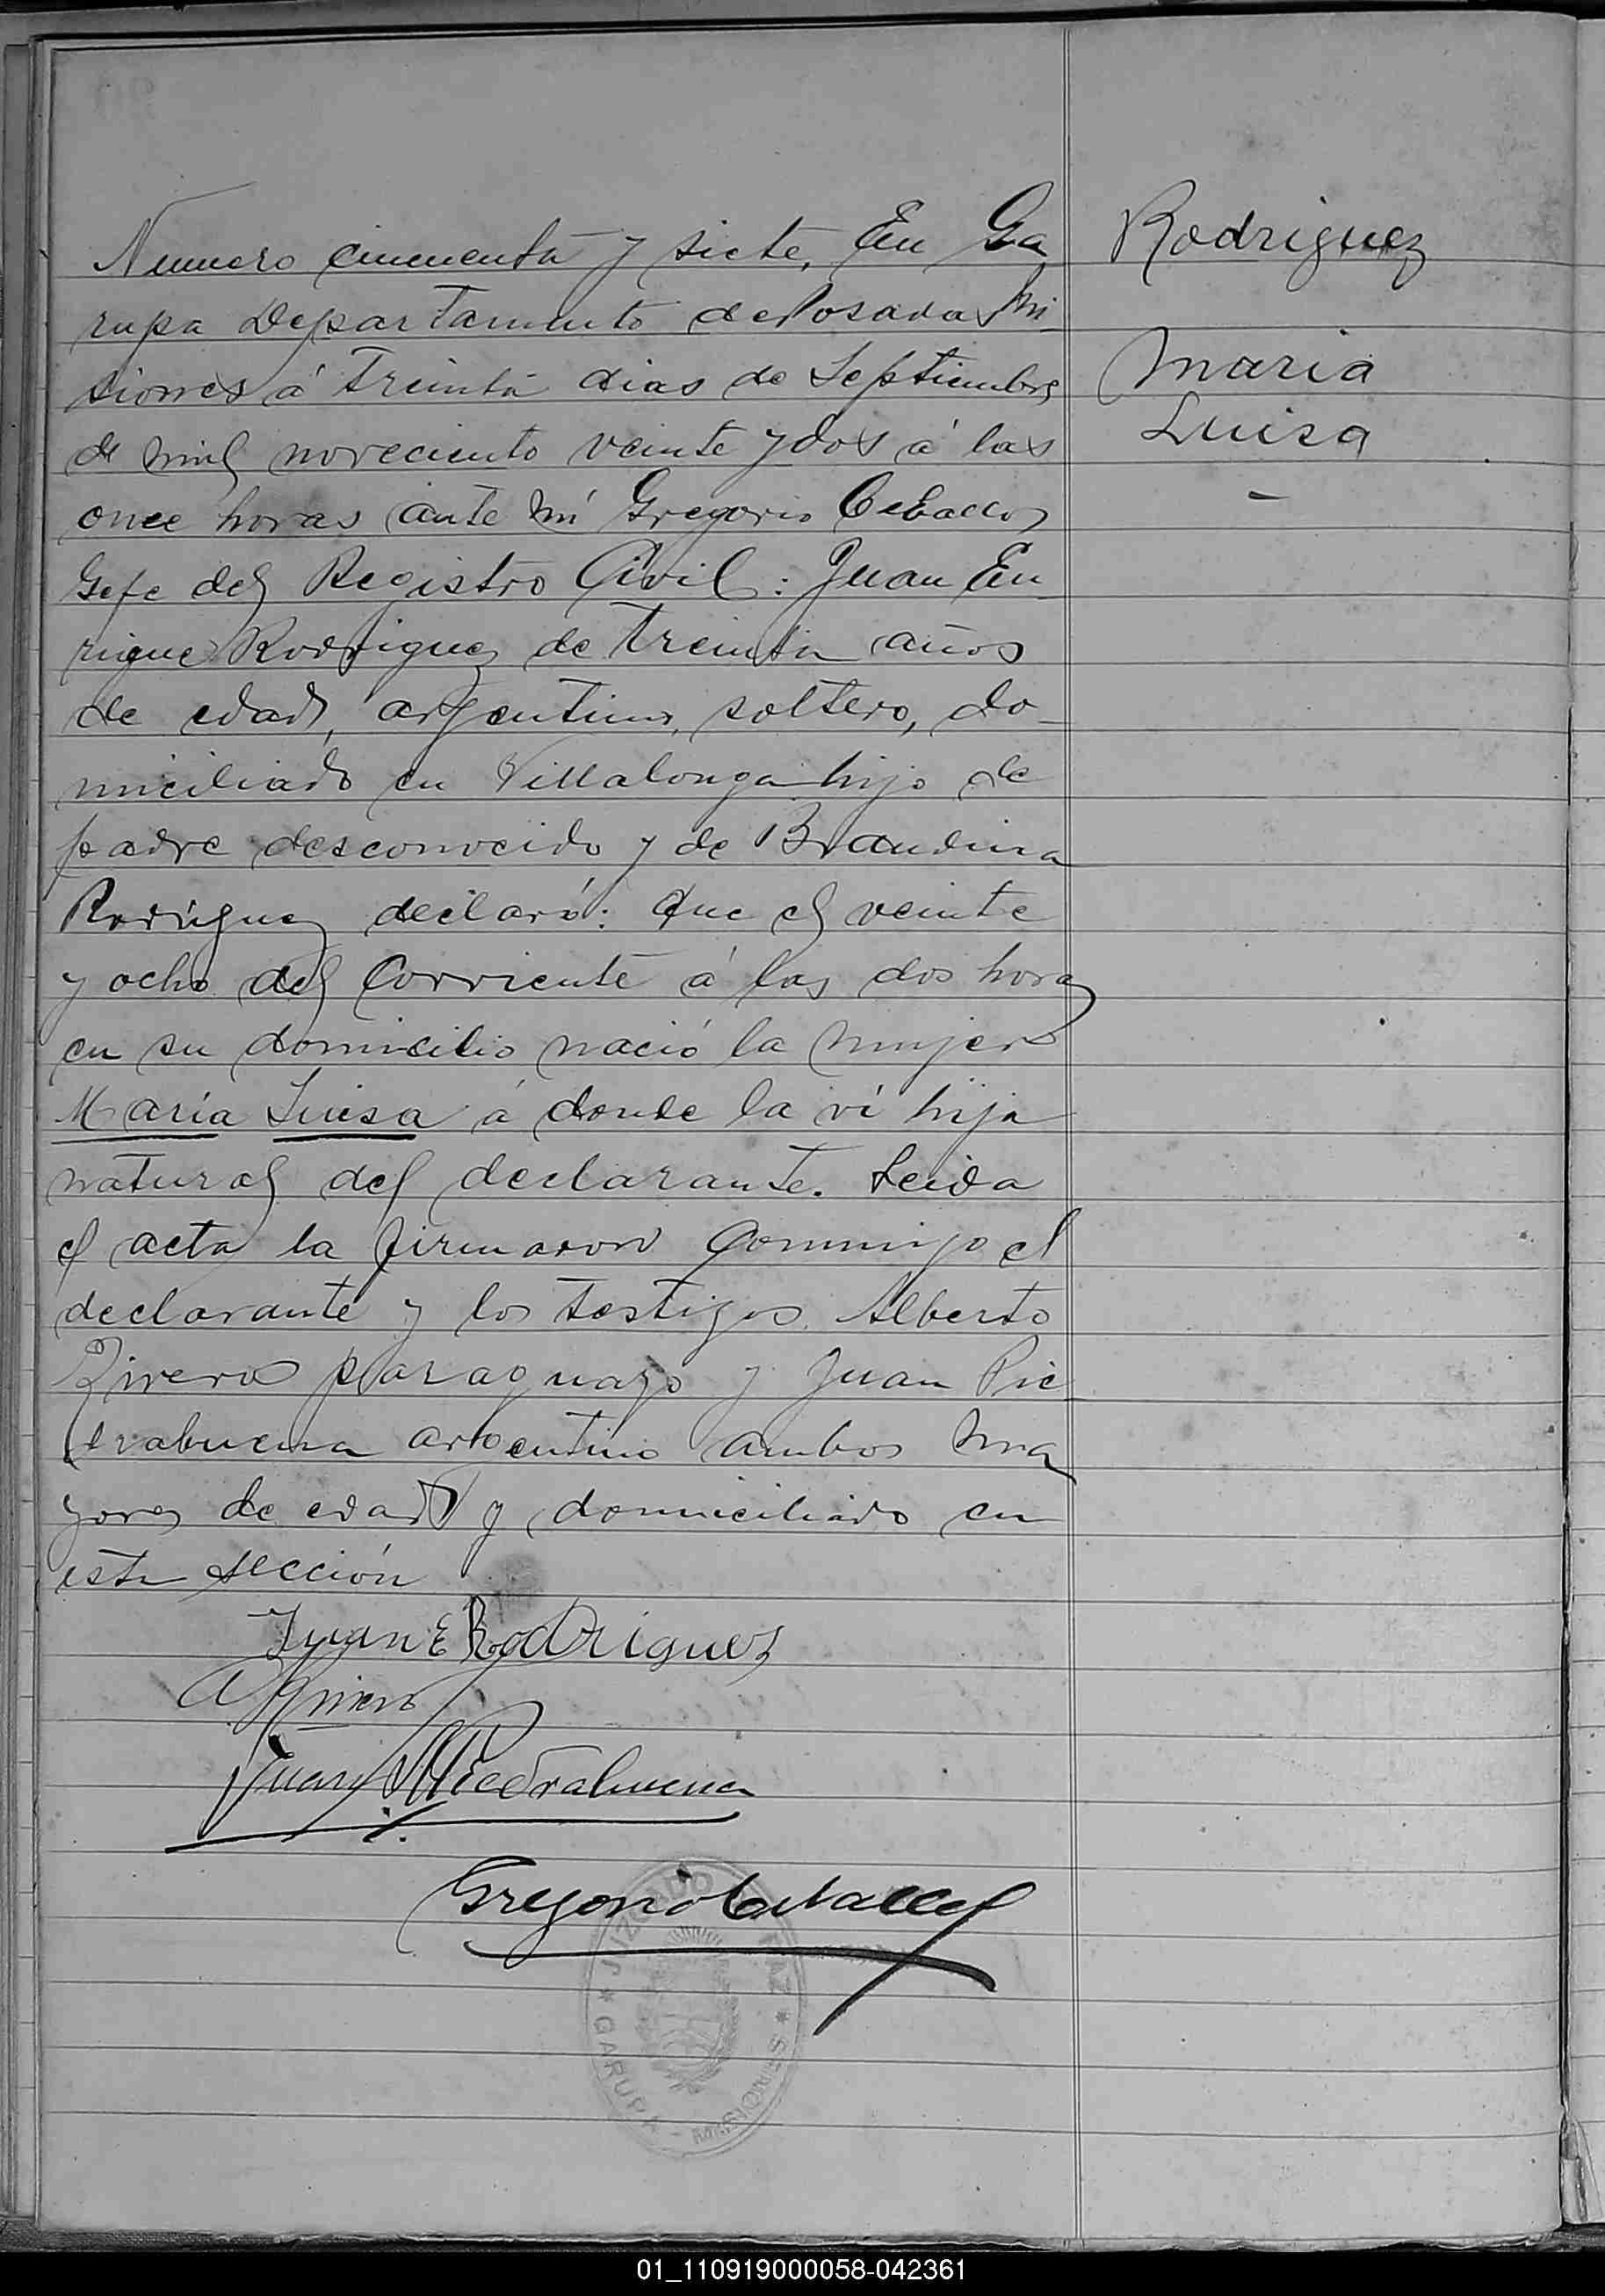 Numero cincuenta y siete, En Ga
rupa Departamento de Posadas Mi
siones á treinta dias de Septiembre
de mil noveciento veinte y dos á las
once horas ante mi Gregorio Ceballos
Gefe del Registro Civil: Juan En
rique Rodriguez de treinta años
de edad, argentino, soltero, do-
miciliado en Villalonga hijo de
padre desconocido y de Braudina
Rodriguez declaró: Que el veinte
y ocho del Corriente á las dos horas
en su domicilio nació la mujer
María Luisa á donde la ví hija
natural del declarante. Leida
el acta la firmaron conmigo el
declarante y los testigos Alberto
Rivero paraguayo y Juan Pie
drabuena argentino ambos ma
yores de edad y domiciliado en
esta sección
Juan E Rodriguez
A Rivero
Juan Piedrabuena
Gregorio Ceballos
JUZGADO DE PAZ
* GARUPA - MISIONES *
Rodriguez
Maria
Luisa
01_110919000058-042361